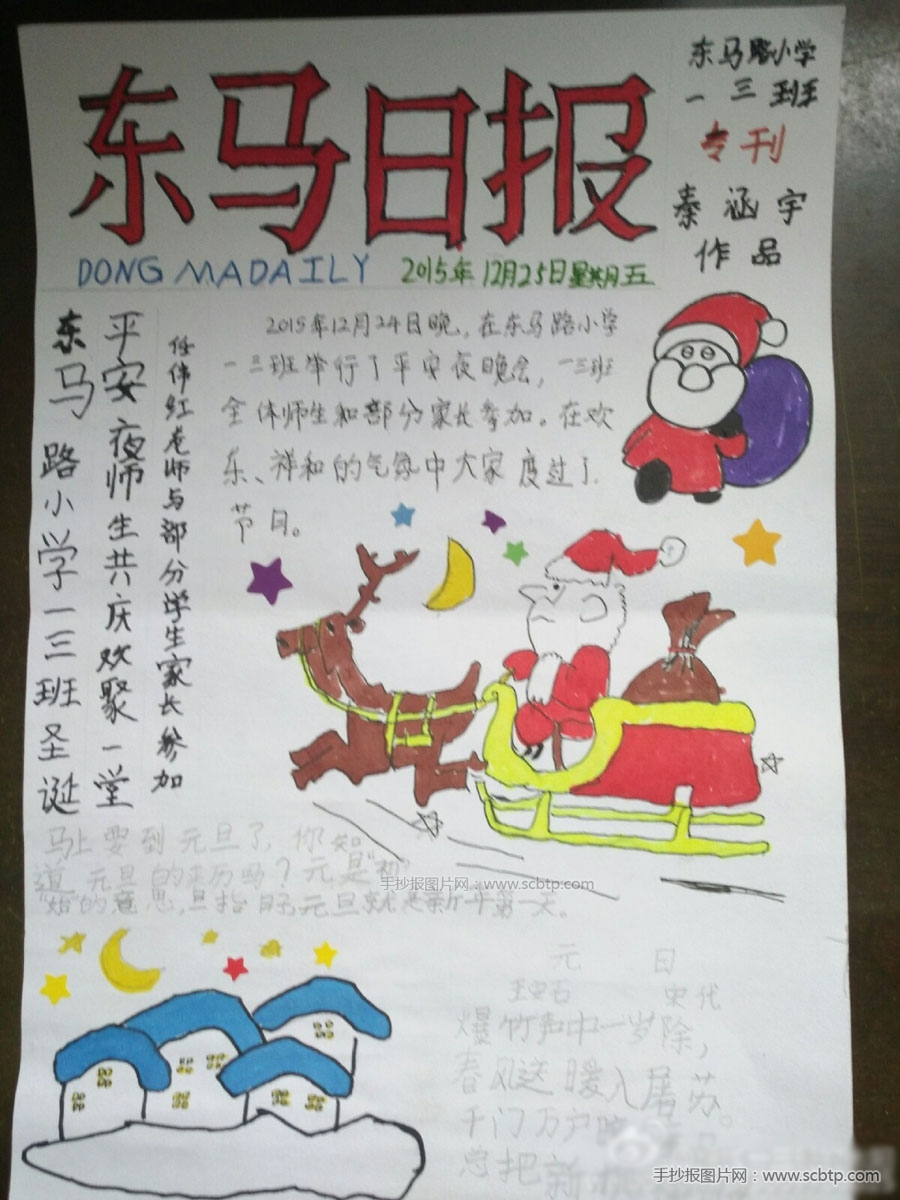 东马日报
DONG MADAILY 2015年12月25日星期五
东马路小学
一三班
专刊
秦涵宇
作品
东马路小学一三班圣诞
平安夜师生共庆欢聚一堂
任伟红老师与部分学生家长参加
2015年12月24日晚,在东马路小学
一三班举行了平安夜晚会,一三班
全体师生和部分家长参加。在欢
乐、祥和的气氛中大家度过了
节日。
马上要到元旦了,你知
道元旦的来历吗?元是"初"
"始"的意思,旦指日子元旦就是新年第一天。
手抄报图片网:www.scbtp.com
元日
王安石 宋代
爆竹声中一岁除,
春风送暖入屠苏。
千门万户
总把新
手抄报图片网:www.scbtp.com